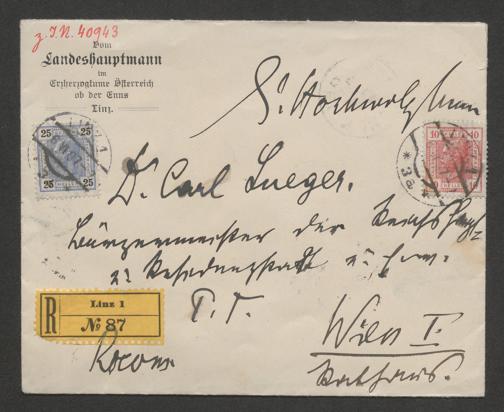 z. I. N. 40943
Vom
Landeshauptmann
im
Erzherzogtume Österreich
ob der Enns
Linz.
Sr. Hochwohlgeboren
25 25
25 25
LINZ 1
10 10
Dr. Carl Lueger.
Bürgermeister der Reichshaupt
u. Residenzstadt
P. T.
R
Linz 1
№ 87
Wien I.
Rathaus.